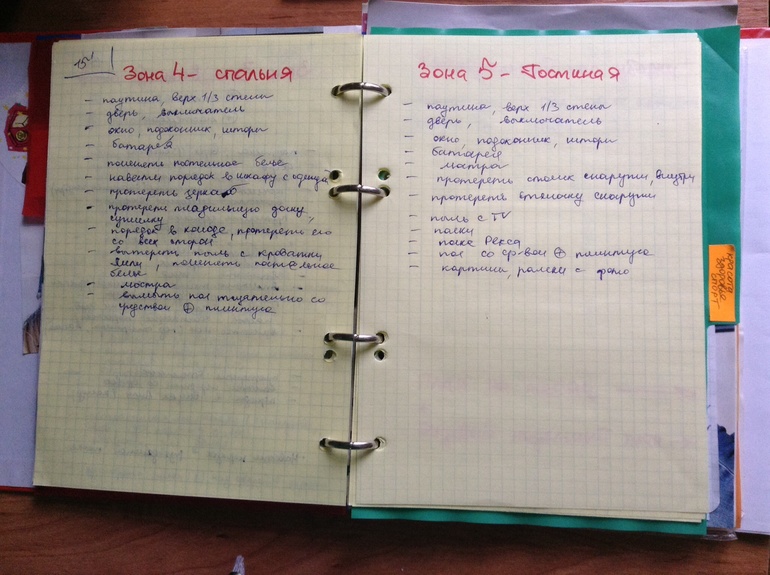 15'
Зона 4 - спальня
- паутина, верх 1/3 стены
- дверь, выключатель
- окно, подоконник, шторы
- батарея
- поменять постельное белье
- навести порядок в шкафу с одеждой
- протереть зеркало
- протереть гладильную доску,
сушилку
- порядок в комоде, протереть его
со всех сторон
- вытереть пыль с кроватки
, поменять постельное
белье
- люстра
- вымыть пол тщательно со
средством ⊕ плинтуса
Зона 5 - Гостиная
- паутина, верх 1/3 стены
- дверь, выключатель
- окно, подоконник, шторы
- батарея
- люстра
- протереть столик снаружи, внутри
- протереть снаружи
- пыль с TV
- полки
- Рекса
- пол со ср-вом ⊕ плинтуса
- картина, рамки с фото
красота
здоровье
спорт